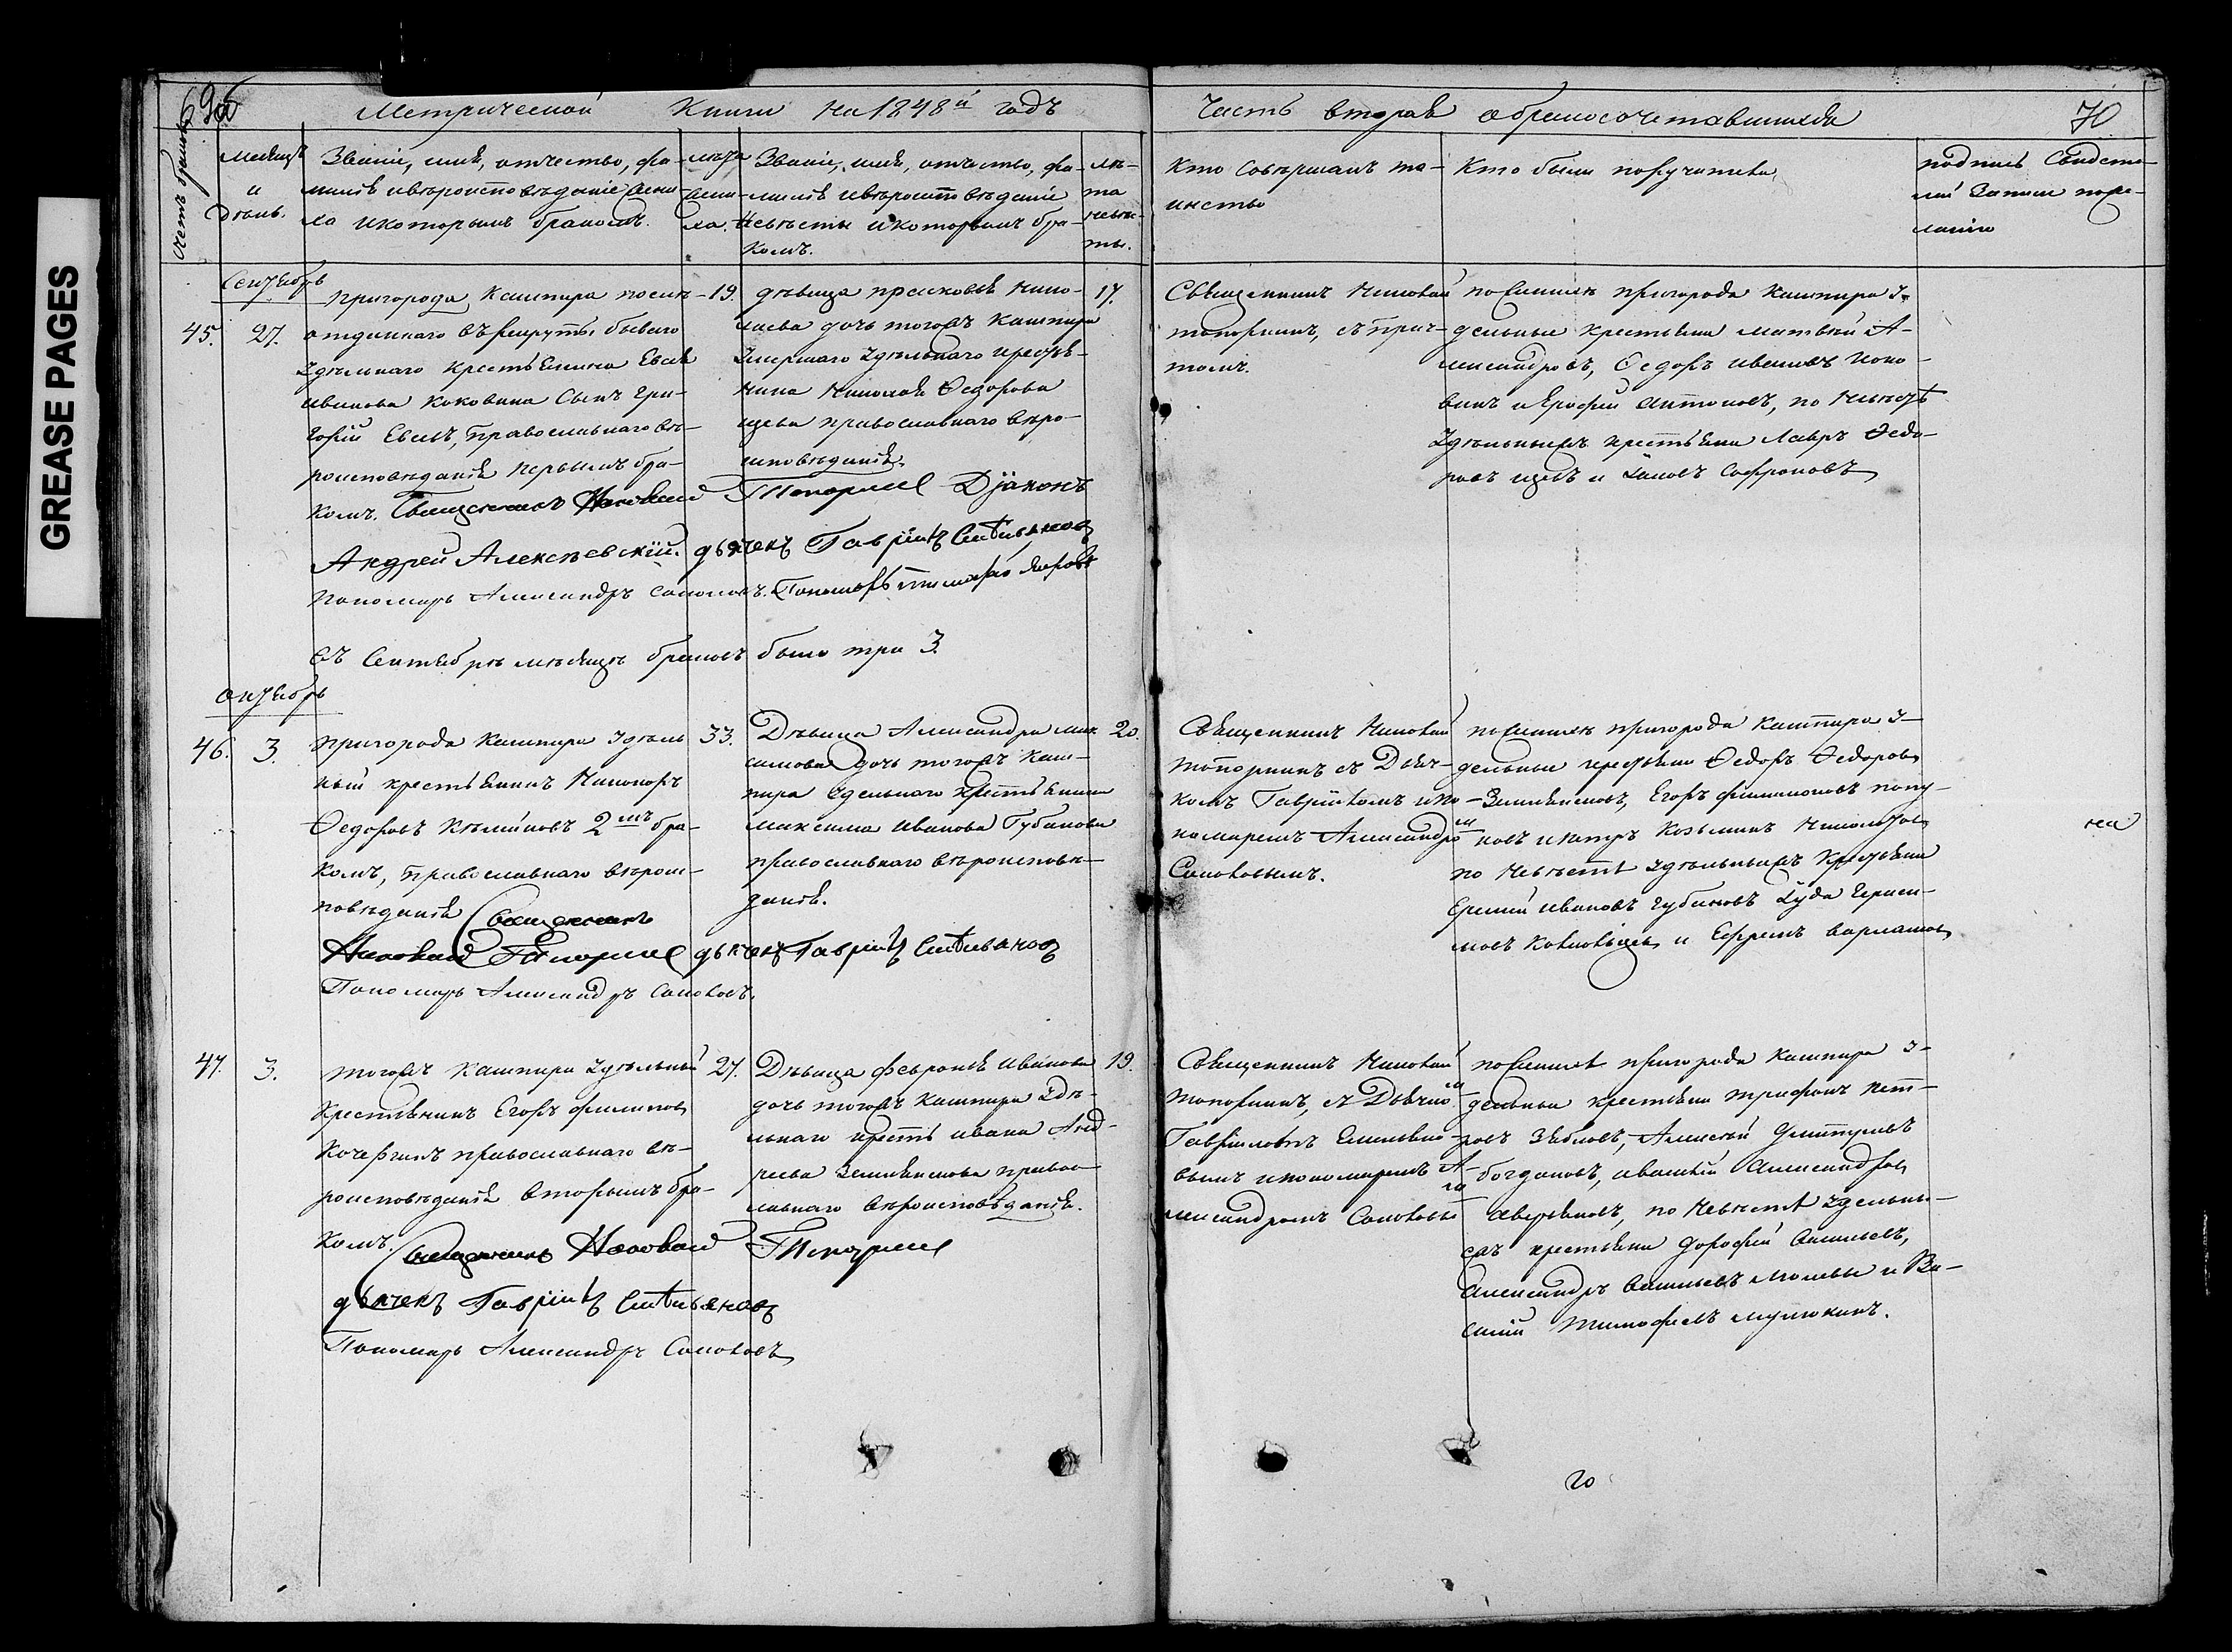 GREASE PAGES
Метрической Книги на 1848й годъ
Часть вторая о бракосочетавшихся
70
счетъ браковъ
месяцъ
и
день.
Званіе, имя, отчество, фа-
милія и вѣроисповѣданіе жени-
ха и которымъ бракомъ.
лѣта
жени-
ха.
Званіе, имя, отчество, фа-
милія и вѣроисповѣданіе
невѣсты и которымъ бра-
комъ.
лѣ-
та
невѣс-
ты.
Кто совершалъ та-
инство
Кто были поручители
подпись свидете-
лей записи по же-
ланію
Сентябрь
45.
27.
пригорода Кашпира
отданнаго въ рекруты бывшаго
удѣльнаго крестьянина Евсея
Иванова Коковина сынъ Гри-
горій Евсеевъ, православнаго вѣ-
роисповѣданія первымъ бра-
комъ.
19.
дѣвица Прасковья Нико-
лаева дочь тогожъ Кашпира
умершаго удѣльнаго крестья-
нина Николая Федорова
православнаго вѣро-
исповѣданія.
17.
Священникъ Николай
Топорнинъ, съ прич-
томъ.
по женихѣ пригорода Кашпира у-
дельные крестьяне Матвей А-
лександровъ, Федоръ Ивановъ Коко-
винъ и Ерофей Антоновъ, по невѣстѣ
удѣльныежъ крестьяне Лавръ Федо-
ровъ и Софроновъ
Священникъ Николай Топорнин Діаконъ
Андрей Алексѣевскій. дьячекъ Гавріилъ
Пономарь Александръ Соколовъ. Пономарь
въ Сентябрѣ мѣсяцѣ браковъ было три 3.
октябрь
46.
3.
пригорода Кашпира удѣль
ный крестьянинъ Никифоръ
Федоровъ 2мъ бра-
комъ, православнаго вѣроис-
повѣданія
33.
Дѣвица Александра Мак
симова дочь тогожъ Каш-
пира удельнаго крестьянина
Максима Иванова Губанова
православнаго вѣроисповѣ-
данія.
20.
Священникъ Николай
Топорнинъ съ Дьяч-
комъ Гавріиломъ и по-
номаремъ Александро
мъ
Соколовымъ.
по женихѣ пригорода Кашпира у-
дельные крестьяне Федоръ Федоровъ
Земляновъ, Егоръ Филиповъ
и Петръ Козьминъ
по невѣстѣ удѣльныежъ крестьяне
Еремей Ивановъ Губановъ Іуда Гераси-
мовъ и Ефремъ Варламовъ
Священникъ
Николай Топорнин дьячекъ Гавріилъ
Пономарь Александръ Соколовъ.
47.
3.
тогожъ Кашпира удѣльный
крестьянинъ Егоръ Филиповъ
Кочергинъ православнаго вѣ-
роисповѣданія вторымъ бра-
комъ.
27.
Дѣвица Февронія Иванова
дочь тогожъ Кашпира удѣ-
льнаго крестья Ивана Анд-
реева православ-
лавнаго вѣроисповѣданія.
19.
Священникъ Николай
Топорнинъ, съ Дьячко
Гавріиломъ
вымъ и пономаремъ А-
лександромъ Соколовы
по женихѣ пригорода Кашпира у-
дельные крестьяне Трифонъ Пет-
ровъ Зябловъ, Алексѣй Дмитріевъ
Богдановъ, Александровъ
Аверьяновъ, по невѣстѣ удельны-
ежъ крестьяне Дорофей Васильевъ,
Александръ Васильевъ и Ва-
силій Тимофеевъ
Священникъ Николай Топорнин
дьячекъ Гавріилъ
Пономарь Александръ Соколовъ